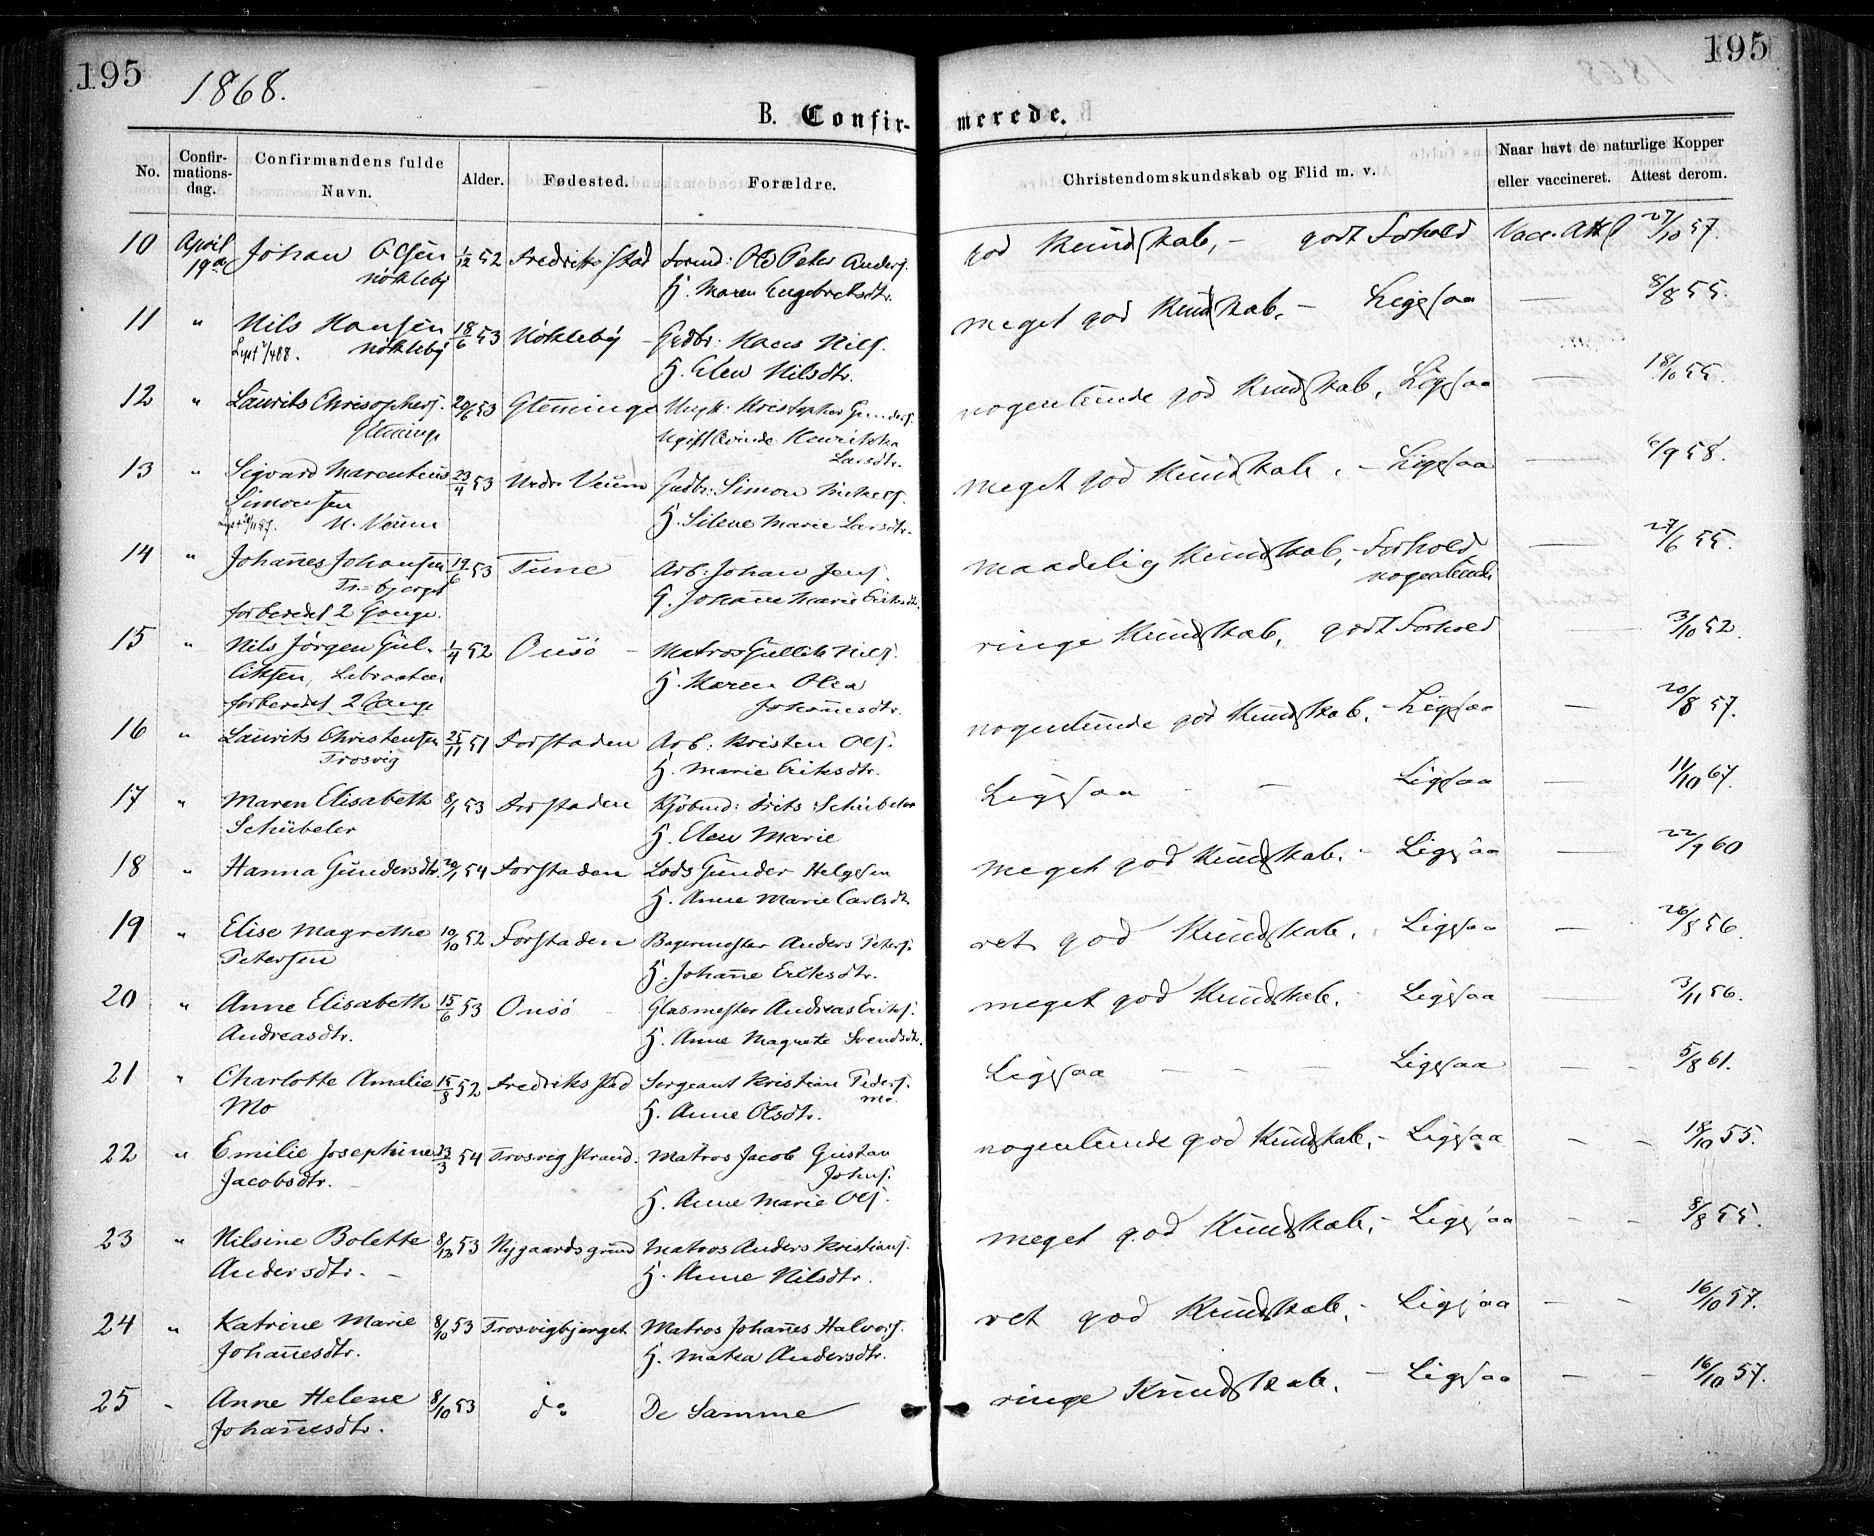 195
195
1868.
B. Confir-
merede.
No.
Confir-
mations-
dag.
Confirmandens fulde
Navn.
Alder.
Fødested.
Forældre.
Christendomskundskab og Flid m. v.
Naar havt de naturlige Kopper
eller vaccineret. Attest derom.
10 April Johan Olsen 1/12 52 Fredrikstad Formd: Ole Peter Anders. god Kundskab, - godt Forhold Vacc. Att. 27/10 57.
19de Nökleby H. Maren Engebretsdtr.
11 " Nils Hansen 18/6 53 Nökleby - Grdbr: Hans Nils. meget god Kundskab. - Ligesaa — 8/8 55.
Nökleby H. Elen Nilsdtr.
12 " Laurits Chrisophers. 20/6 53 Glemminge Ungk: Kristopher Gunders. nogenlunde god Kundskab, Ligesaa — 18/10 55.
Glemminge Ugift Qvinde Henrikka
Larsdtr.
13 " Sigvard Marentius 23/4 53 Nedr. Veum Grdbr: Simon Mikels. meget god Kundskab. - Ligesaa — 6/9 58.
Simonsen H. Silene Marie Larsdtr.
N. Veum
14 " Johannes Johansen 19/6 53 Tune Arb: Johan Jens. maadelig Kundskab, - Forhold — 27/6 55.
Tr=bjerget H. Johanne Marie Eriksdtr. nogenlunde
forberedt 2 Gange.
15 " Nils Jörgen Gul- 1/4 52 Onsö - Matros Gullik Nils. ringe Kundskab, godt Forhold — 3/10 52.
liksen, H. Maren Olea
forberedt 2 Gange Johannesdtr.
16 " Laurits Christensen 25/11 51 Forstaden Arb: Kristen Ols. nogenlunde god Kundskab. - Ligesaa — 20/8 57.
Trosvig H. Marie Eriksdtr.
17 " Maren Elisabeth 8/1 53 Forstaden Kjöbmd: Frits Schübeler Ligesaa - - Ligesaa — 11/10 67.
Schübeler H. Elen Marie
18 " Hanna Gundersdtr. 20/1 54 Forstaden Lods Gunder Helgesen meget god Kundskab. - Ligesaa — 22/9 60
H. Anne Marie Carlsdtr
19 " Elise Magrethe 10/10 52 Forstaden Bagermester Anders Peters. ret god Kundskab. Ligesaa — 26/8 56.
Petersen H. Johanne Eriksdtr.
20 " Anne Elisabeth 15/6 53 Onsö Glasmester Andreas Eriks. meget god Kundskab. Ligesaa — 3/11 56.
Andreasdtr. H. Anne Magrete Svendsdtr.
21 " Charlotte Amalie 15/8 52 Fredrikstad Sergeant Kristian Peders. Ligesaa - - - Ligesaa - - 5/8 61.
Mo Mo.
H. Anne Olsdtr.
22 " Emilie Josephine 23/3 54 Trosvigstrand. Matros Jacob Gustav nogenlunde god Kundskab, - Ligesaa - - 18/10 55.
Jacobsdtr. Johns.
H. Anne Marie Ols.
23 " Nilsine Bolette 8/12 53 Nygaardsgrund Matros Anders Kristians. meget god Kundskab, - Ligesaa - - 8/8 55.
Andersdtr. - H. Anne Nilsdtr.
24 " Katrine Marie 8/10 53 Trosvigbjerget Matros Johannes Halvors. ret god Kundskab. - Ligesaa - - 16/10 57.
Johannesdtr. H. Matea Andersdtr.
25 " Anne Helene 8/10 53 do De Samme ringe Kundskab. - Ligesaa - - 16/10 57.
Johannesdtr.